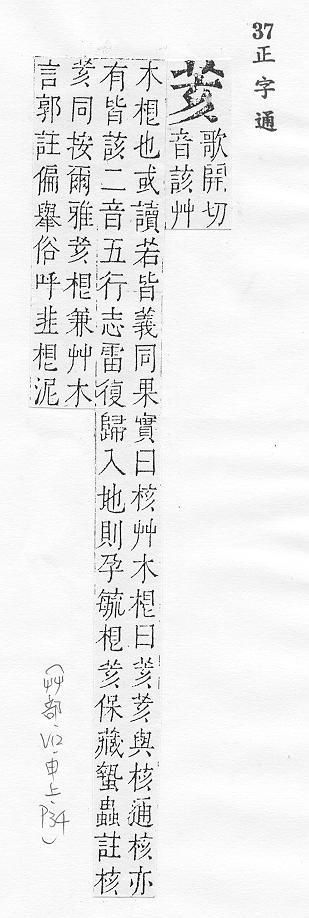 37正字通
荄
歌開切
音該艸
木根也或讀若皆義同果實曰核艸木根曰荄荄與核通核亦
有皆該二音五行志雷復歸入地則孕毓根荄保藏蟄蟲註核
荄同按爾雅荄根兼艸木
言郭註偏舉俗呼韭根泥
(艸部、V12、申上、P34)